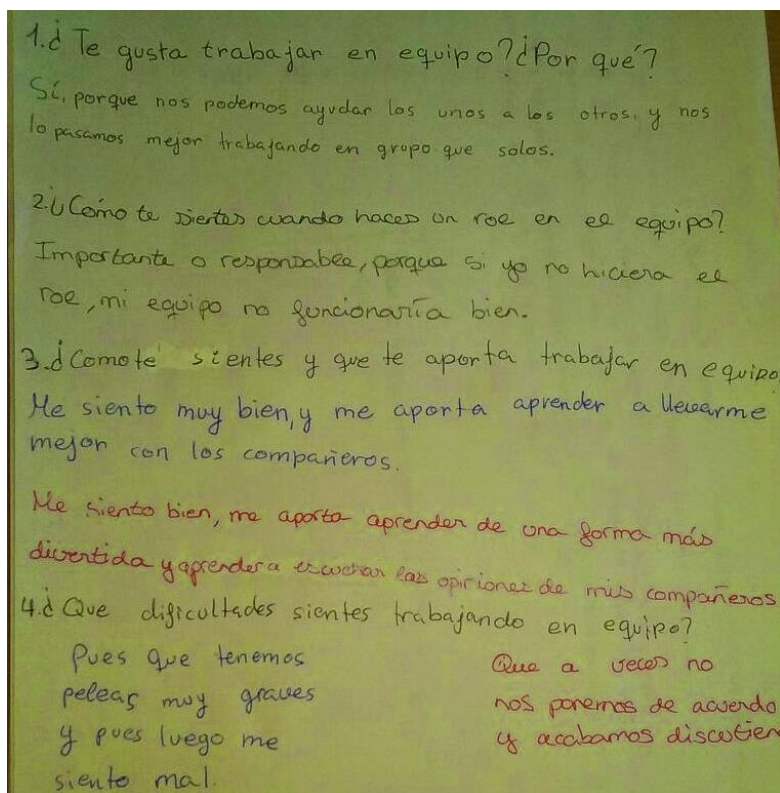 1.¿Te gusta trabajar en equipo?¿Por qué?
Sí, porque nos podemos ayudar los unos a los otros, y nos
lo pasamos mejor trabajando en grupo que solos.
2.¿Cómo te sientes cuando haces un rol en el equipo?
Importante o responsable, porque si yo no hiciera el
rol, mi equipo no funcionaría bien.
3.¿Como te sientes y que te aporta trabajar en equipo
Me siento muy bien, y me aporta aprender a llevarme
mejor con los compañeros.
Me siento bien, me aporta aprender de una forma más
divertida y aprender a escuchar las opiniones de mis compañeros
4.¿Que dificultades sientes trabajando en equipo?
Pues que tenemos
peleas muy graves
y pues luego me
siento mal.
Que a veces no
nos ponemos de acuerdo
y acabamos discutien